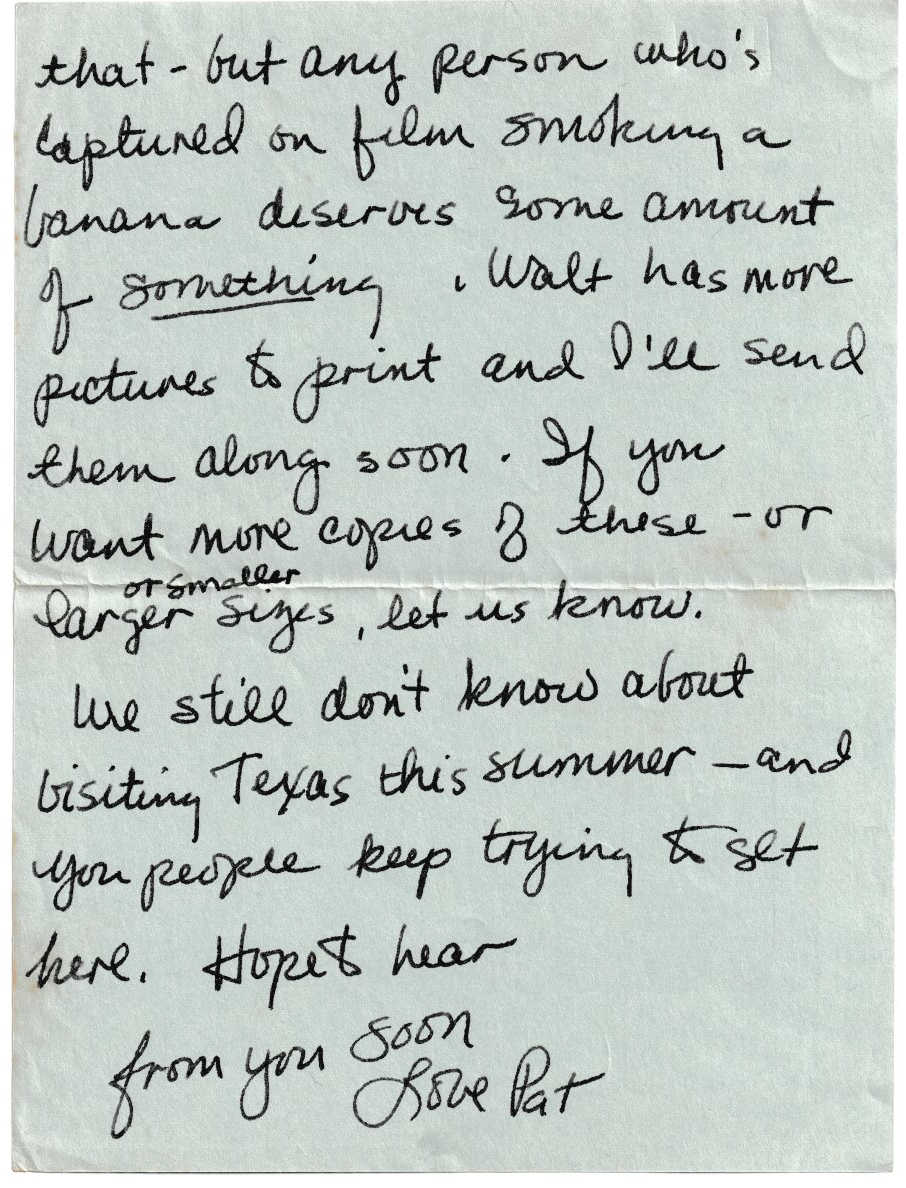 that - but any person who's
captured on film smoking a
banana deserves some amount
of something. Walt has more
pictures to print and I'll send
them along soon. If you
want more copies of these - or
or smaller
larger sizes, let us know.
We still don't know about
visiting Texas this summer - and
you people keep trying to get
here. Hope to hear
from you soon
Love Pat